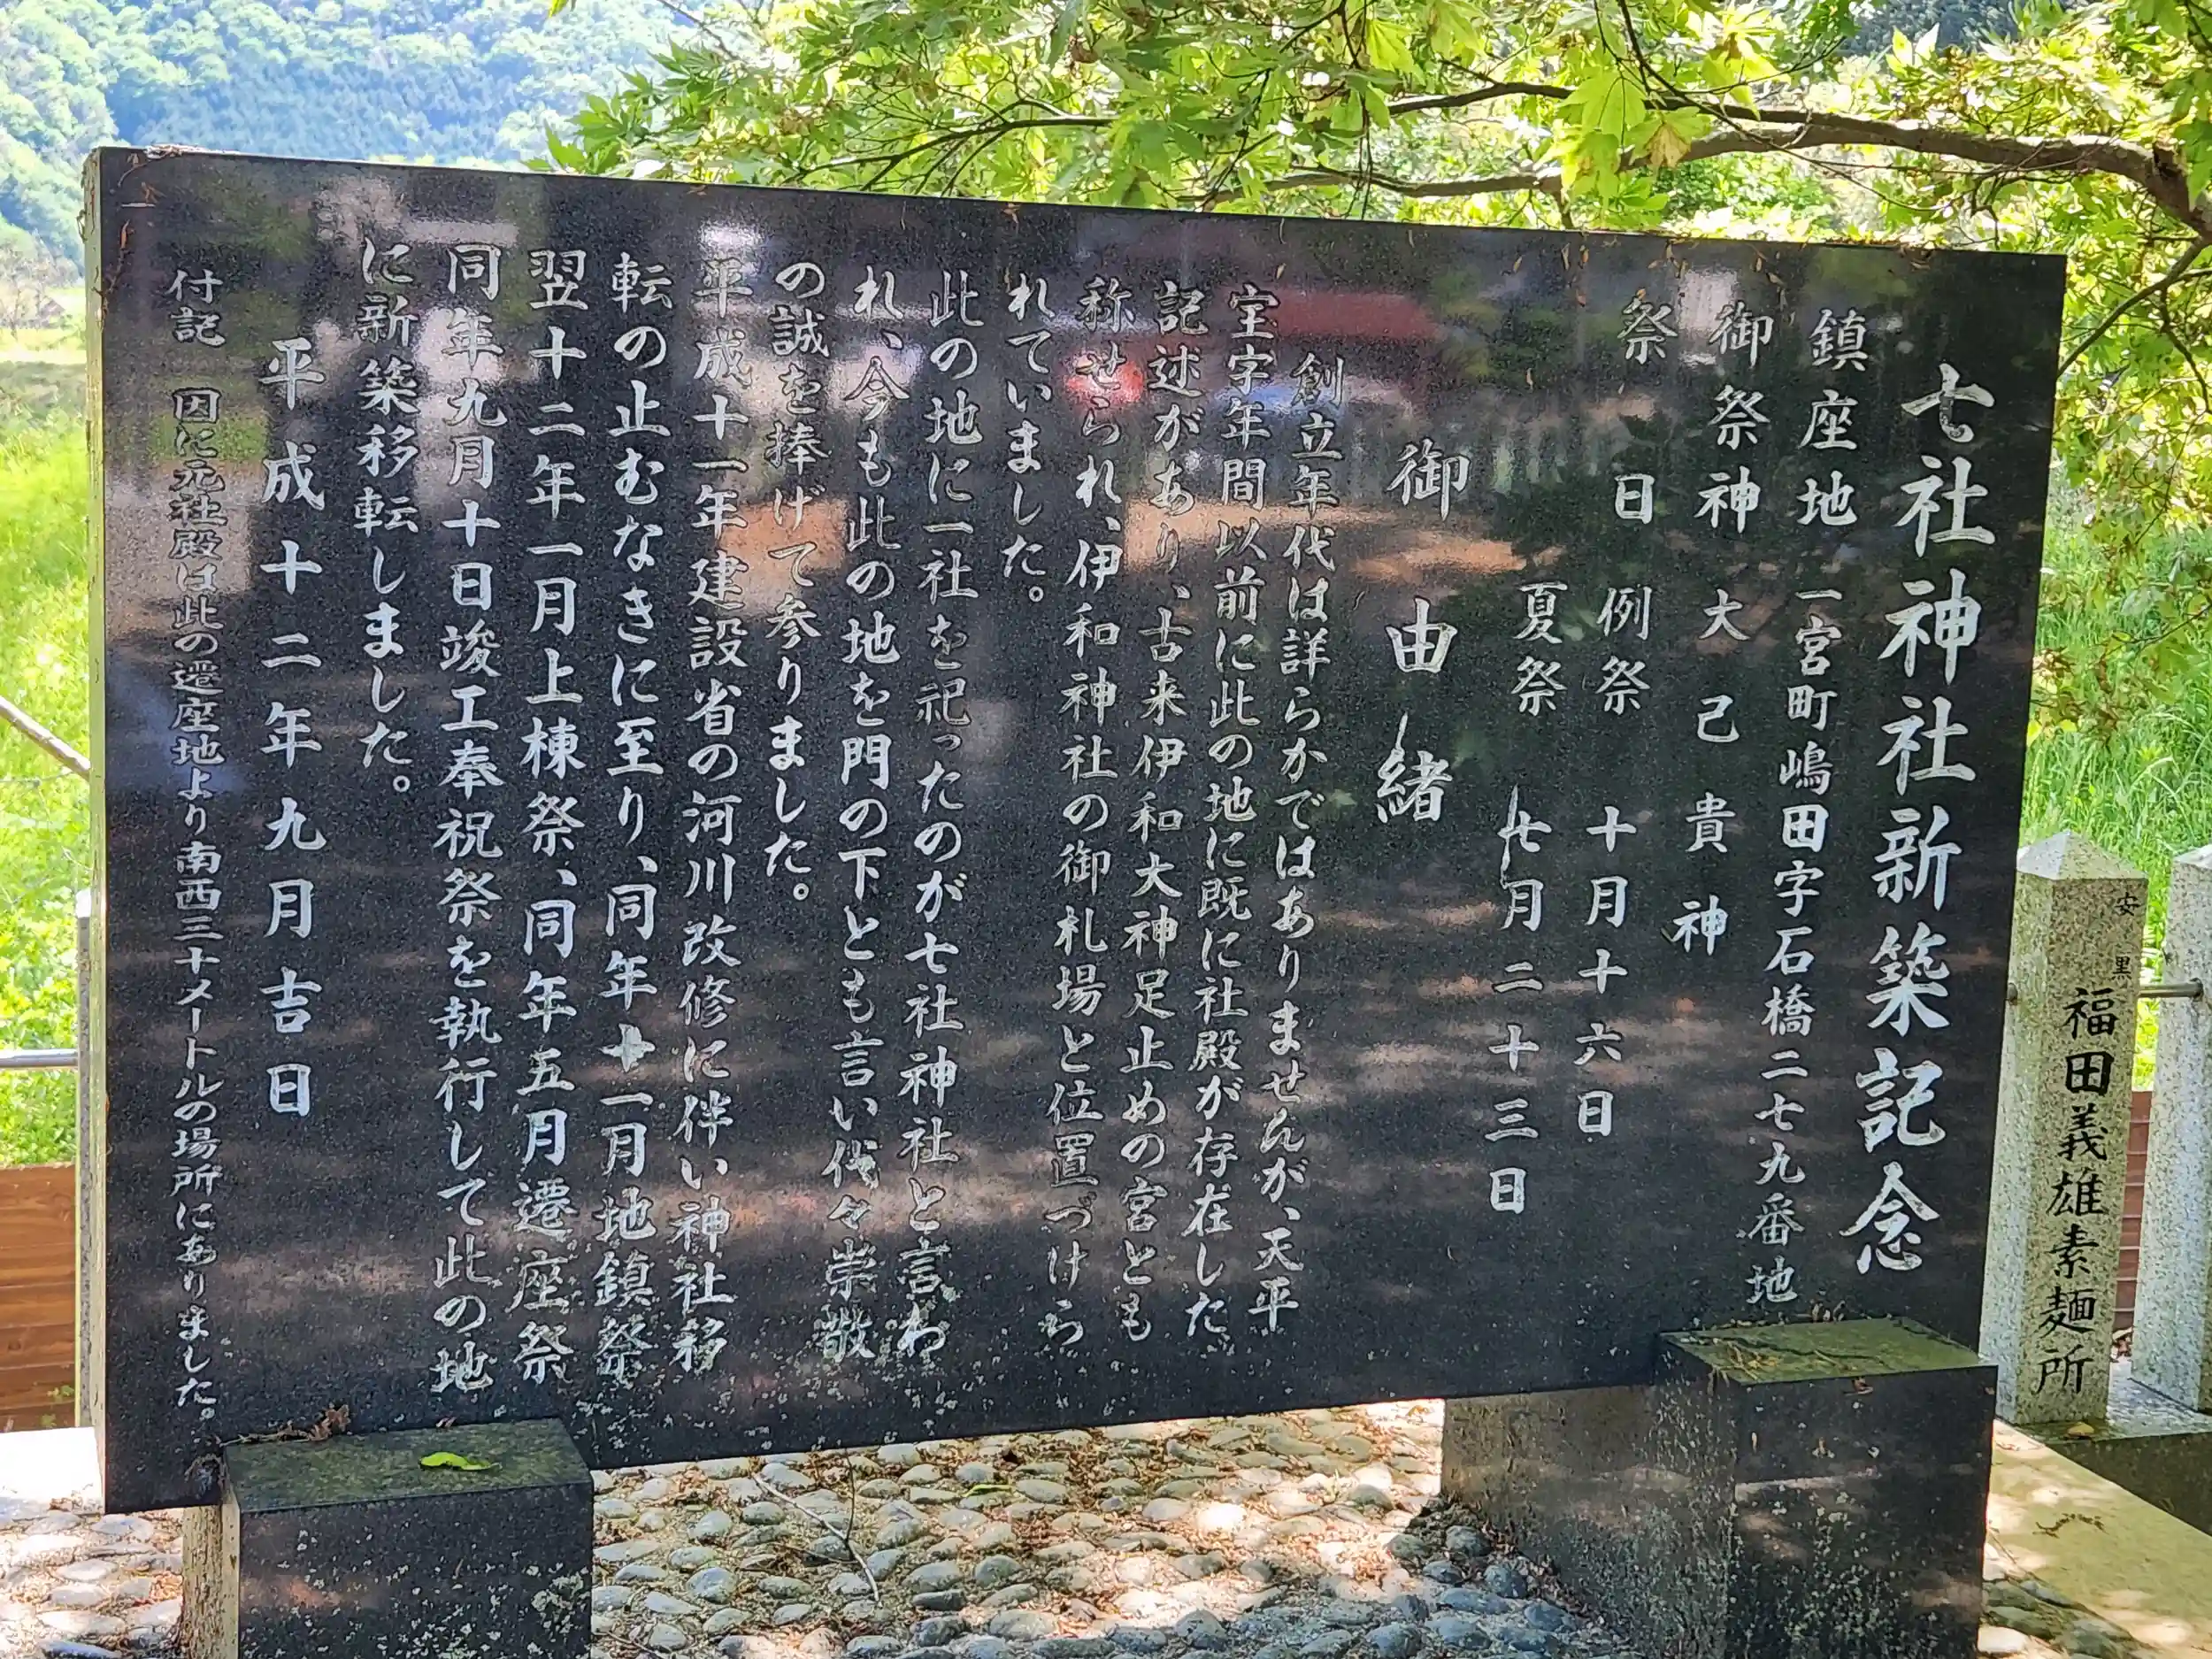 七社神社新築記念
鎮座地 一宮町嶋田字石橋二七九番地
御祭神 大己貴神
祭日 例祭 十月十六日
夏祭 七月二十三日
御由緒
創立年代は詳らかではありませんが、天平
宝字年間以前に此の地に既に社殿が存在した
記述があり、古来伊和大神足止めの宮とも
称せられ、伊和神社の御札場と位置づけら
れていました。
此の地に一社を祀ったのが七社神社と言わ
れ、今も此の地を門の下とも言い代々崇敬
の誠を捧げて参りました。
平成十一年建設省の河川改修に伴い神社移
転の止むなきに至り、同年十一月地鎮祭
翌十二年一月上棟祭、同年五月遷座祭
同年九月十日竣工奉祝祭を執行して此の地
に新築移転しました。
平成十二年九月吉日
付記 因に元社殿は此の遷座地より南西三十メートルの場所にありました。
安黒
福田義雄素麺所